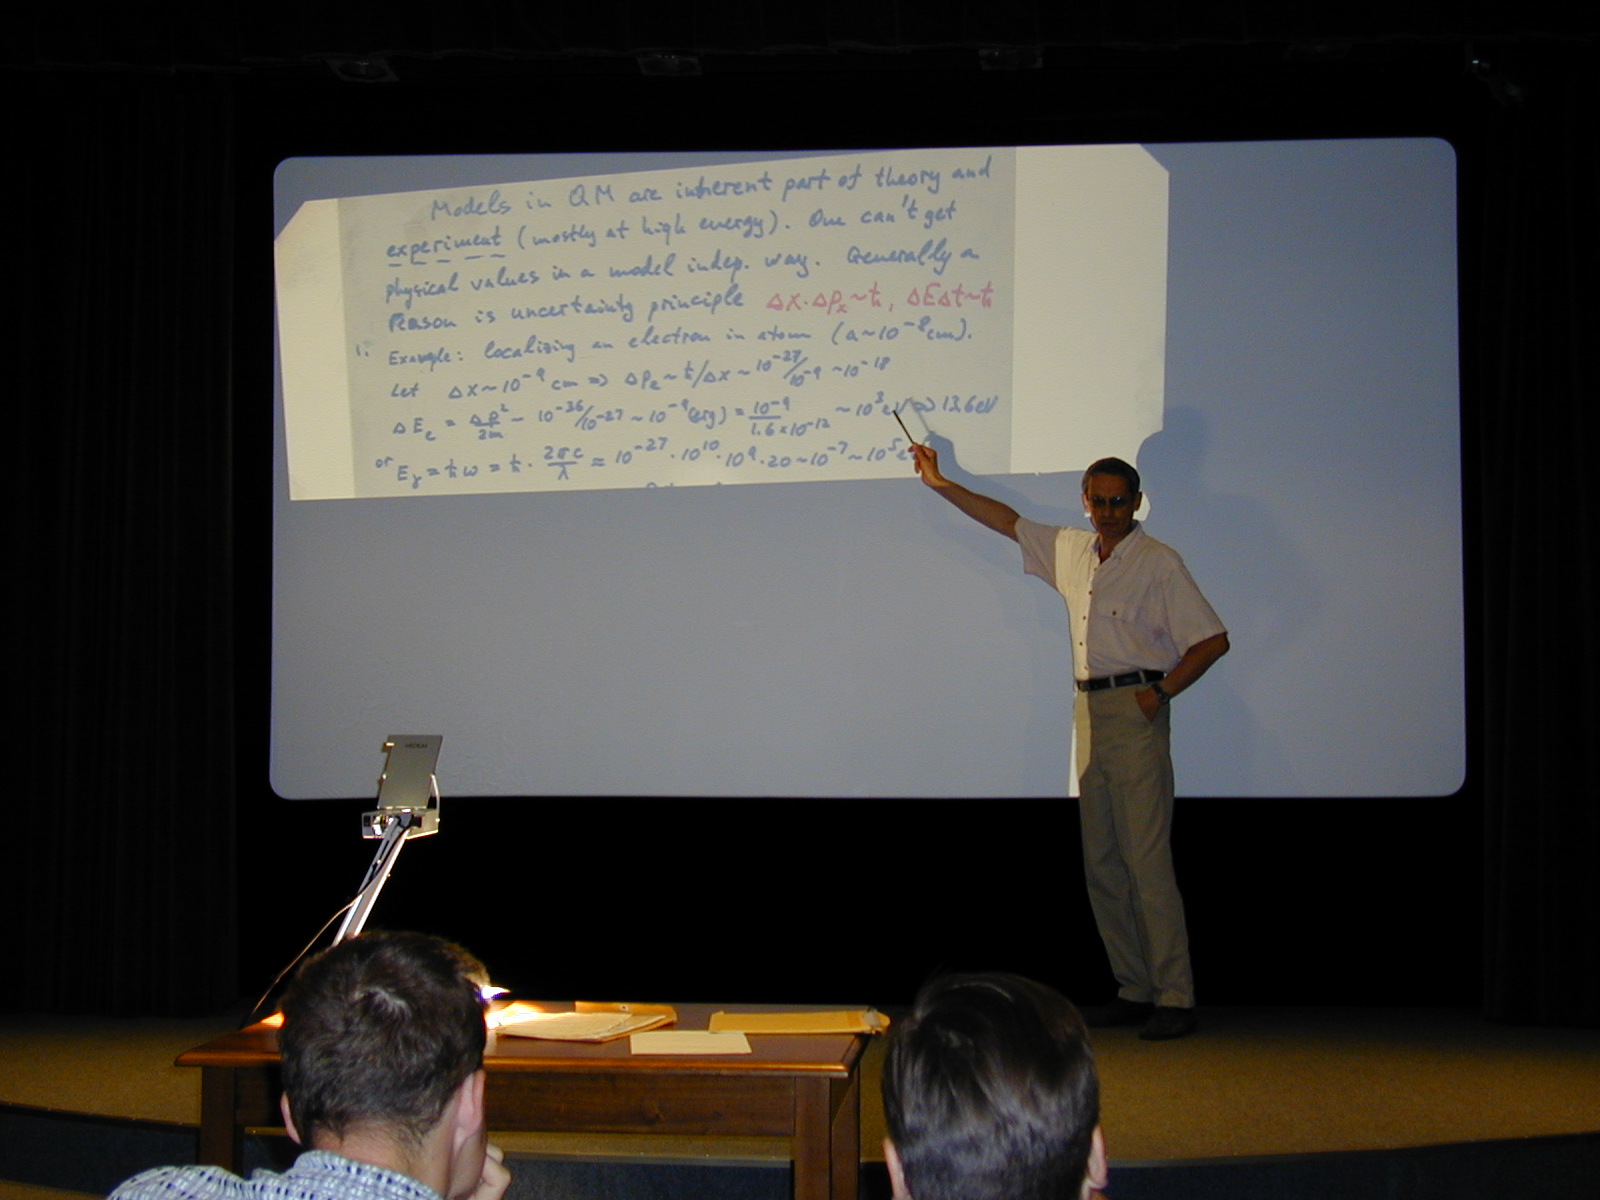 Models in QM are inherent part of theory and
experiment (mostly at high energy). One can't get
physical values in a model indep. way. Generally a
Reason is uncertainty principle Δx·Δpₓ~ħ, ΔEΔt~ħ
1. Example: localizing an electron in atom (a~10⁻⁸cm).
Let Δx~10⁻⁹cm => Δpₑ~ħ/Δx~10⁻²⁷/10⁻⁹~10⁻¹⁸
ΔEₑ = Δp²/2m ~ 10⁻³⁶/10⁻²⁷~10⁻⁹(erg) = 10⁻⁹/1.6×10⁻¹² ~10³eV 13.6eV
or Eᵧ = ħω = ħ·2πc/λ ≈ 10⁻²⁷·10¹⁰·10⁹·20~10⁻⁷~10⁵e